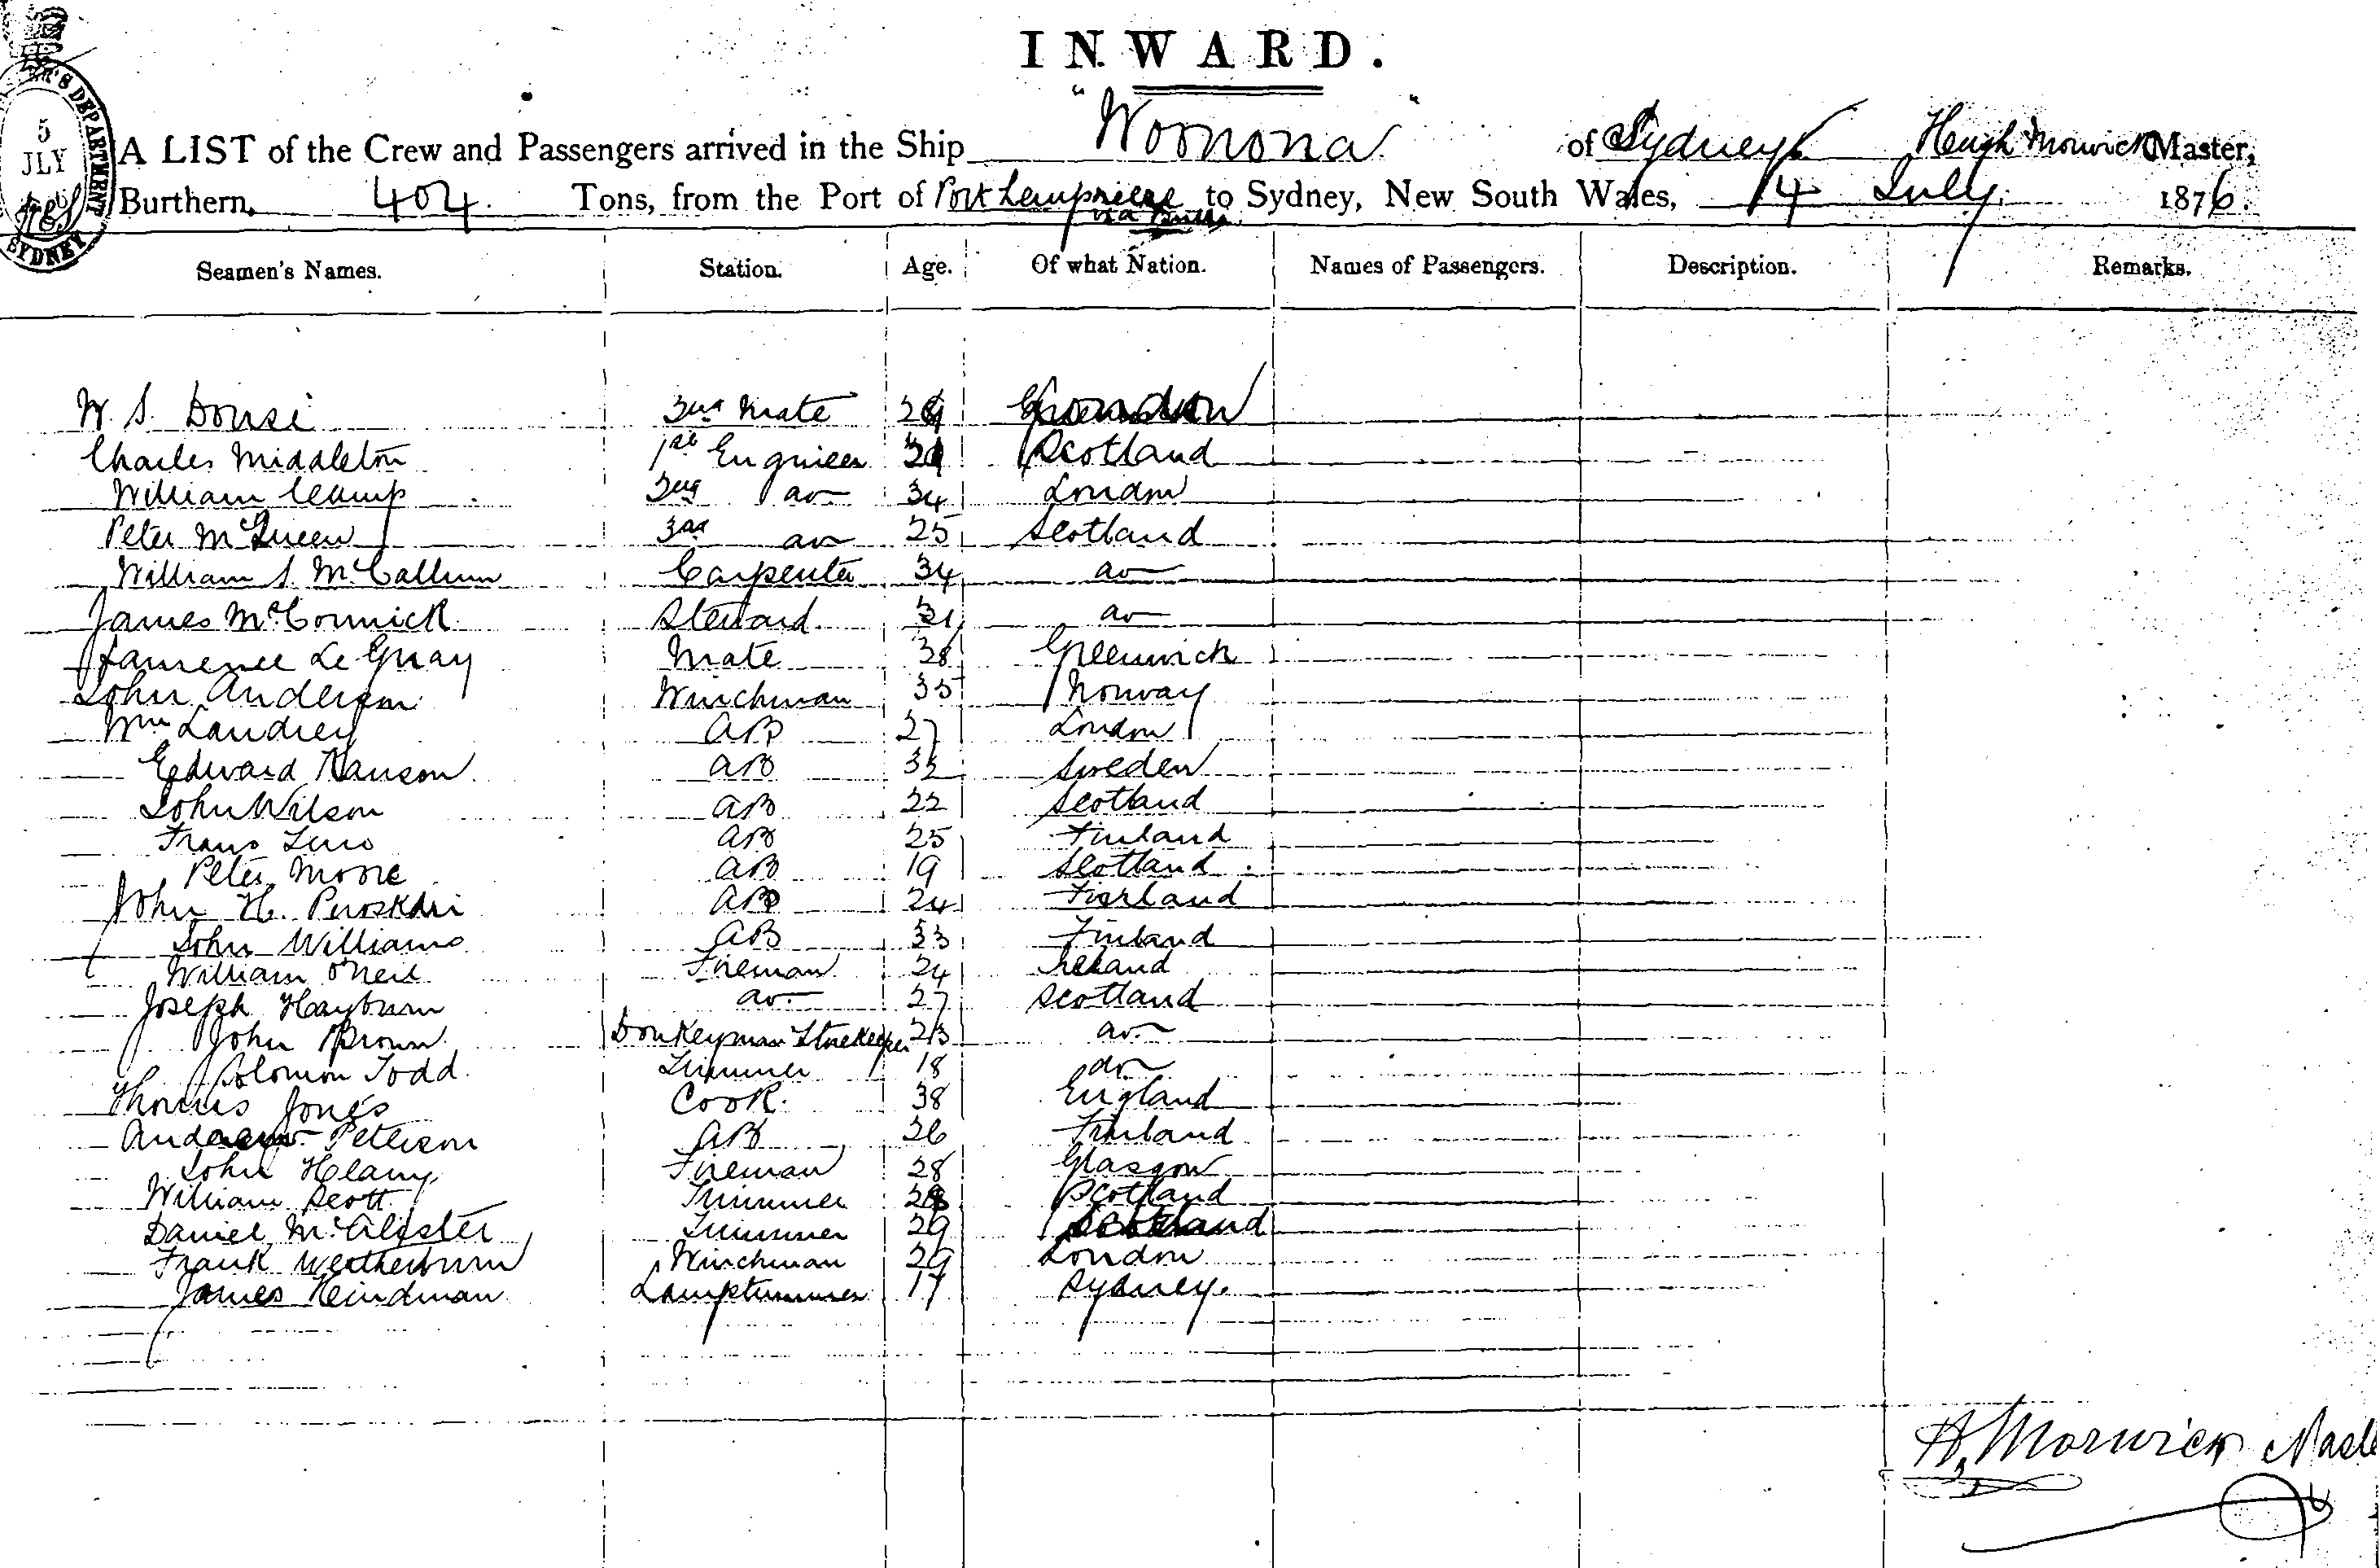 INWARD.
5
JLY
DEPARTMENT
SYDNEY
A LIST of the Crew and Passengers arrived in the Ship "Woonona" of Sydney Hugh Morwick Master,
Burthern, 404. Tons, from the Port of Port Lempriere to Sydney, New South Wales, 4 July 1876.
via Bulli
Seamen's Names. Station. Age. Of what Nation. Names of Passengers. Description. Remarks.
W. S. Douse 2nd Mate London
Charles Middleton 1st Engineer Scotland
William Camp 2nd do 34 London
Peter McQueen 3rd do 25 Scotland
William S. McCallum Carpenter 34 do
James McCormick Steward 31 do
Laurence Le Guay Mate 38 Greenwich
John Anderson Winchman 35 Norway
Wm Landrey AB 27 London
Edward Hanson AB 32 Sweden
John Wilson AB 22 Scotland
Frans AB 25 Finland
Peter Moore AB 19 Scotland
John H. AB 24 Finland
John Williams AB 33 Finland
William O'Neil Fireman 24 Ireland
Joseph Hayburn do 27 Scotland
John Brown Donkeyman Storekeeper 23 do
Solomon Todd Trimmer 18 do
Thomas Jones Cook 38 England
Andrew Petterson AB 26 Finland
John Fireman 28 Glasgow
William Scott Trimmer 28 Scotland
Daniel McAlister Trimmer 29 Scotland
Frank Wertherburn Winchman 29 London
James Hindman Lamptrimmer 17 Sydney.
H. Morwick Master